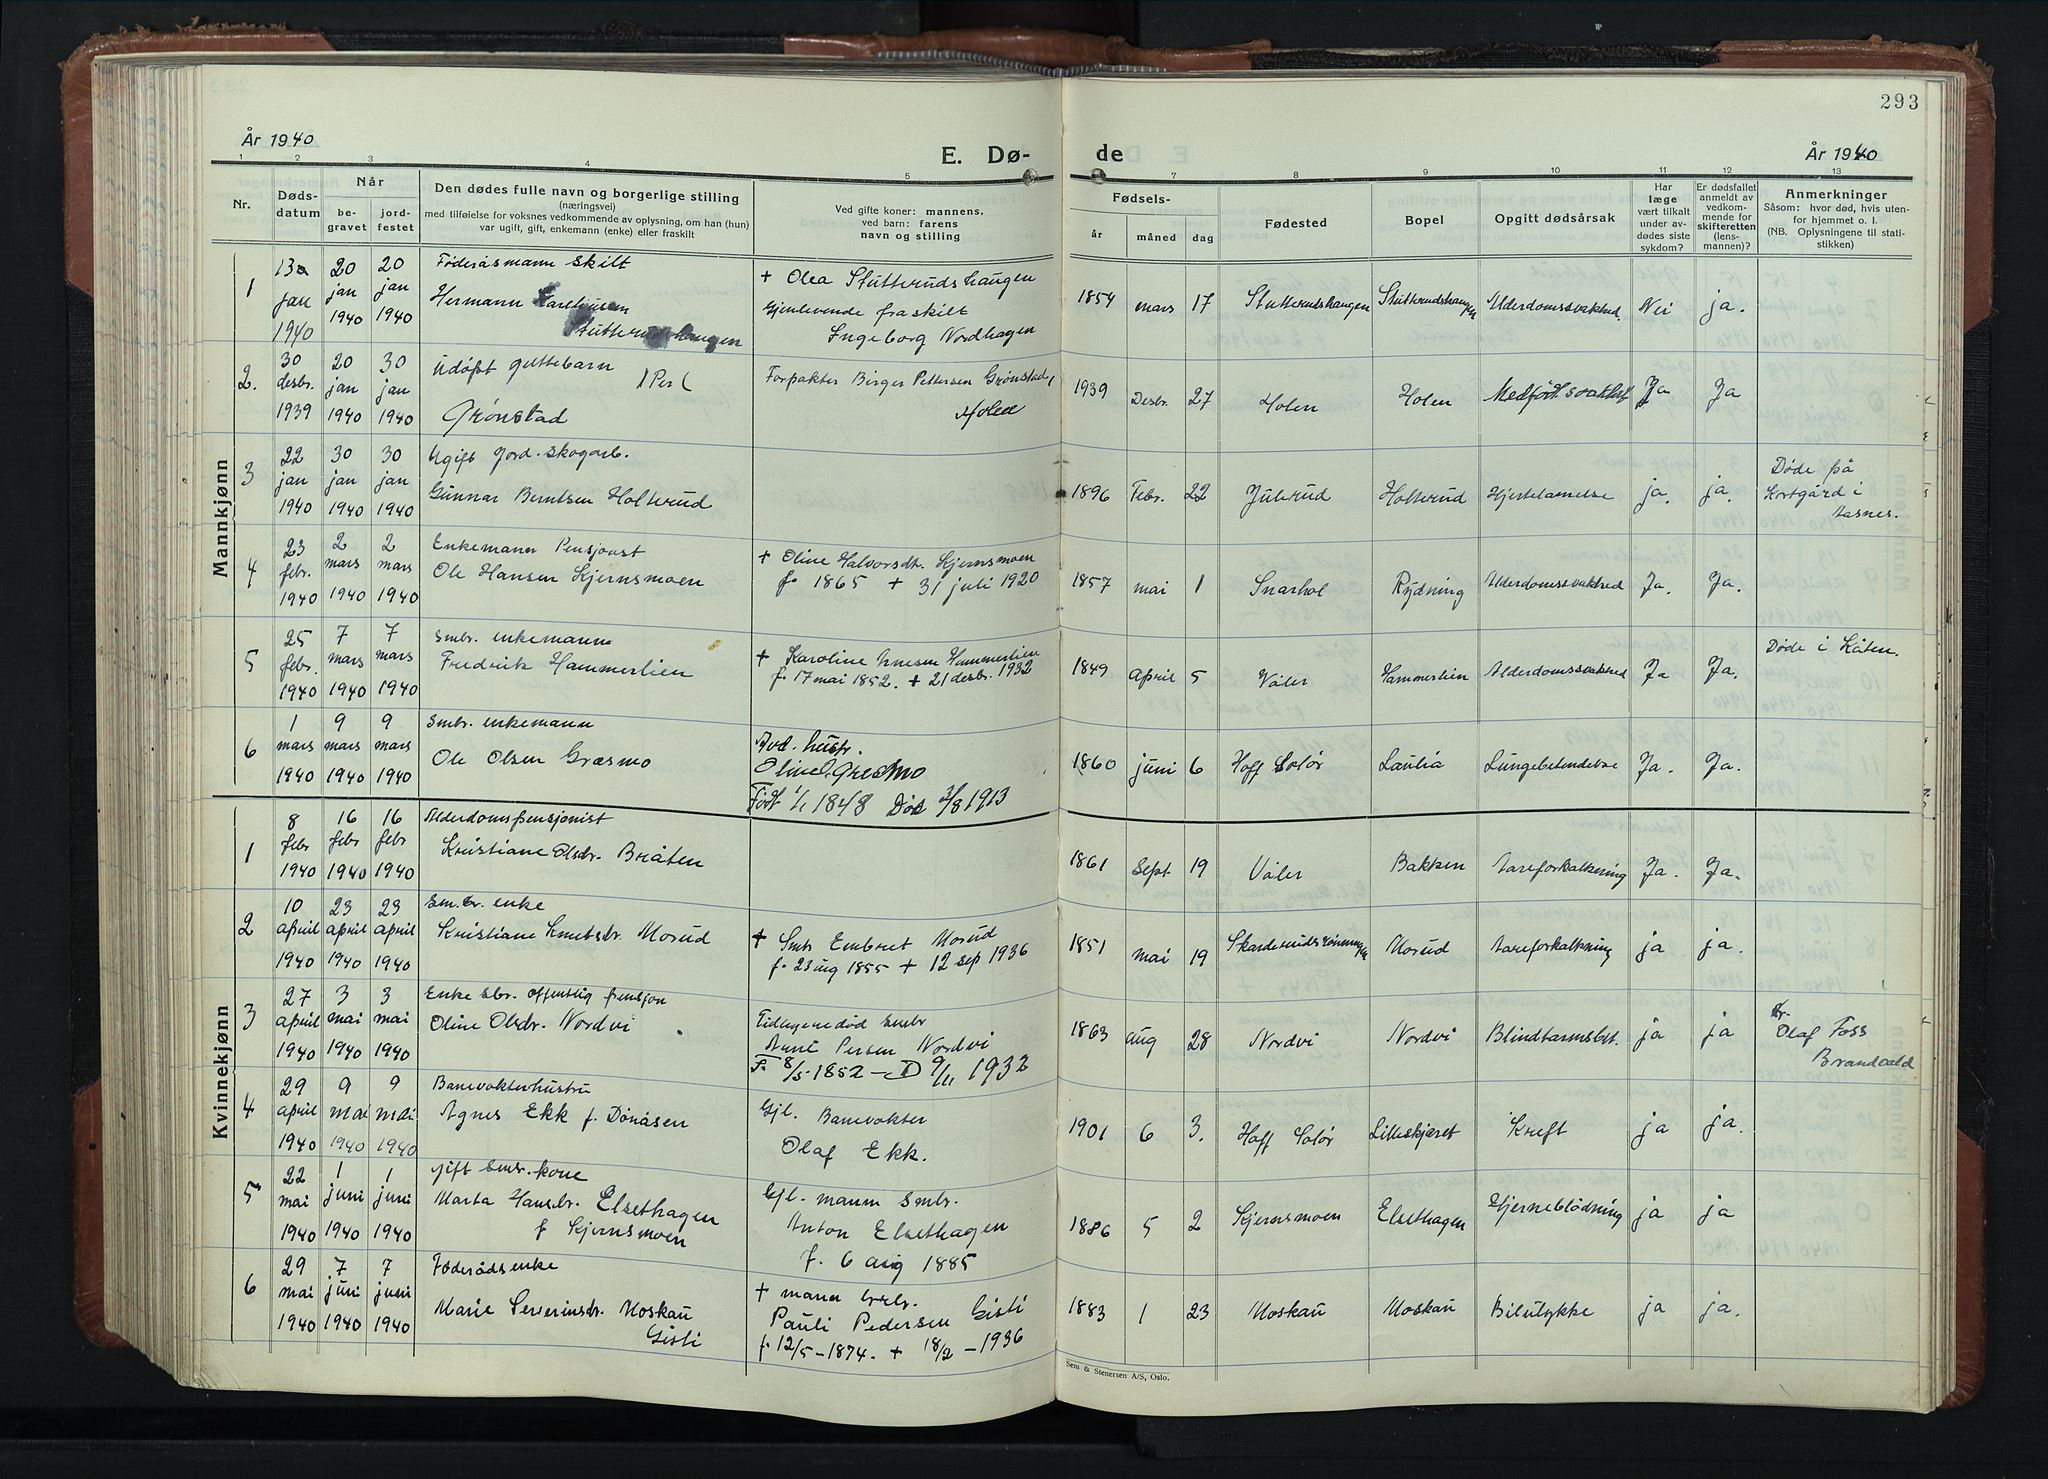 293
År 1940
E. Dø-
de
År 1940
1 2 3 4 5 7 8 9 10 11 12 13
Nr.
Døds-
datum
Når
be-
gravet
jord-
festet
Den dødes fulle navn og borgerlige stilling
(næringsvei)
med tilføielse for voksnes vedkommende av oplysning, om han (hun)
var ugift, gift, enkemann (enke) eller fraskilt
Ved gifte koner: mannens,
ved barn: farens
navn og stilling
Fødsels-
år måned dag
Fødested
Bopel
Opgitt dødsårsak
Har
læge
vært tilkalt
under av-
dødes siste
sykdom?
Er dødsfallet
anmeldt av
vedkom-
mende for
skifteretten
(lens-
mannen)?
Anmerkninger
Såsom: hvor død, hvis uten-
for hjemmet o. l.
(NB. Oplysningene til stati-
stikken)
Mannkjønn
1 13 jan 1940 20 jan 1940 20 jan 1940
Føderåsmann skilt
Hermann
Stutterudshaugen
+ Olea Stutterudshaugen
Gjenlevende fraskilt
Ingeborg Nordhagen
1854 mars 17 Stutterudshaugen Stutterudshaugen Alderdomssvakhed. Nei ja.
2. 30 desbr. 1939 20 jan 1940 30 jan 1940
Udøpt guttebarn
) Per (
Grønstad
Forpakter Birger Pettersen Grønstad,
Holen
1939 Desbr. 27 Holen Holen Medfødt svakhet Ja Ja
3 22 jan 1940 30 jan 1940 30 jan 1940
Ugift jord. skogarb.
Gunnar Berntsen Holterud
1896 Febr. 22 Juterud Holterud Hjertelamelse ja. ja.
Døde på
i
Aasnes.
4 23 febr. 1940 2 mars 1940 2 mars 1940
Enkemann Pensjonst
Ole Hansen Kjernsmoen
+ Oline Halvorsdt. Kjernsmoen
f. 1865 + 31 juli 1920
1857 mai 1 Snarhol Rydning Alderdomssvakhed Ja. Ja.
5 25 febr. 1940 7 mars 1940 7 mars 1940
Smbr. enkemann
Fredrik Hammerlien
+ Karoline Hammerlien
f. 17 mai 1852. + 21 desbr. 1932
1849 April 5 Våler Hammerlien Alderdomssvakhed Ja Ja.
Døde i Kåten.
6 1 mars 1940 9 mars 1940 9 mars 1940
Smbr. enkemann
Ole Olsen Græsmo
Avd. hustr.
Oline Gresmo
Født 1/1 1848 Død 3/8 1913
1860 juni 6 Hoff Solør Laulia Lungebetendelse Ja. Ja.
Kvinnekjønn
1 8 febr 1940 16 febr 1940 16 febr 1940
Alderdomspensjonist
Kristiane Olsdr. Bråten
1861 Sept 19 Våler Bakken Aareforkalkning Ja. Ja.
2 10 april 1940 23 april 1940 23 april 1940
Sm.br. enke
Kristiane Knutsdr. Morud
+ Smbr Embret Morud
f. 23 aug 1855 + 12 sep 1936
1851 mai 19 Morud Aareforkalkning ja ja.
3 27 april 1940 3 mai 1940 3 mai 1940
Enke sbr. offentlig pensjon
Oline Olsdr. Nordvi
Tidligere død Smbr
Arne Persen Nordvi
F. 8/5 1852 — D 9/11 1932
1863 aug 28 Nordvi Nordvi Blindtarmsbet. ja ja
Olaf Foss
Brandvald
4 29 april 1940 9 mai 1940 9 mai 1940
Banevokterhustru
Agnes Ekk f. Dønåsen
Gjl. Banevokter
Olaf Ekk.
1901 6 3. Hoff Solør Lilleskjæret Kreft ja ja.
5 22 mai 1940 1 juni 1940 1 juni 1940
gift Smbr. kone
Marta Hansdr. Elsethagen
f Kjernsmoen
Gjl. mann Smbr.
Anton Elsethagen
f. 6 aug 1885
1886 5 2 Kjernsmoen Elsethagen Hjerneblödning ja ja
6 29 mai 1940 7 juni 1940 7 juni 1940
Føderådsenke
Marie Severinsdr. Moskau
Gisti
+ mann
Pauli Pedersen Gisti
f. 12/5 – 1874. + 18/2 – 1936
1883 1 23 Moskau Moskau Bilulykke ja ja.
Sem & Stenersen A/S, Oslo.